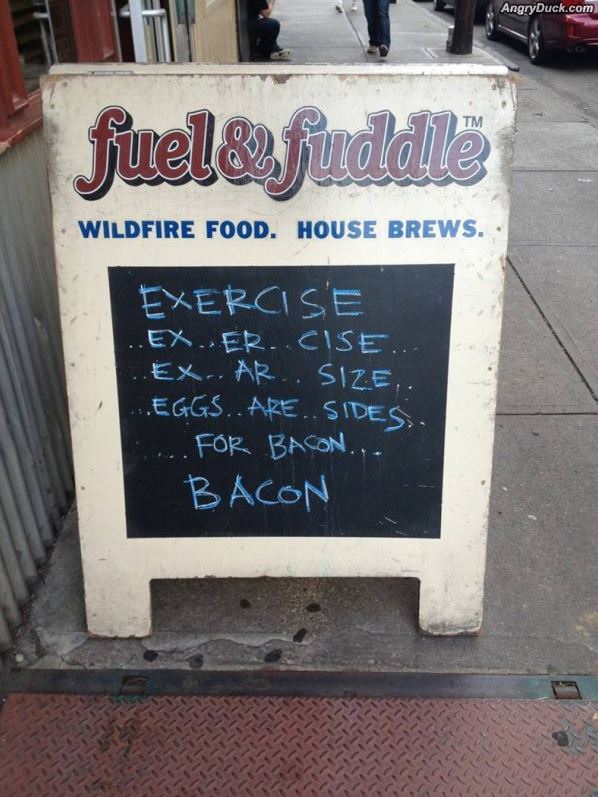 AngryDuck.com
fuel & fuddle™
WILDFIRE FOOD. HOUSE BREWS.
EXERCISE
..EX..ER..CISE...
..EX..AR..SIZE..
..EGGS..ARE..SIDES..
....FOR BACON...
BACON